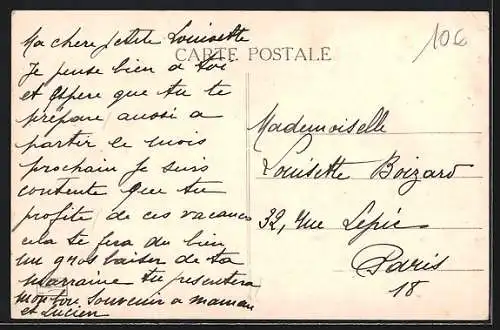 106
CARTE POSTALE
Ma chere petite Louisette
Je pense bien a toi
et espere que tu te
prépare aussi a
partir le mois
prochain Je suis
contente que tu
profite de ces vacances
cela te fera du bien
un gros baiser de ta
marraine tu presentera
mon bon Souvenir a maman
et Lucien
Mademoiselle
Louisette Boizard
32, rue Lépic
Paris
18